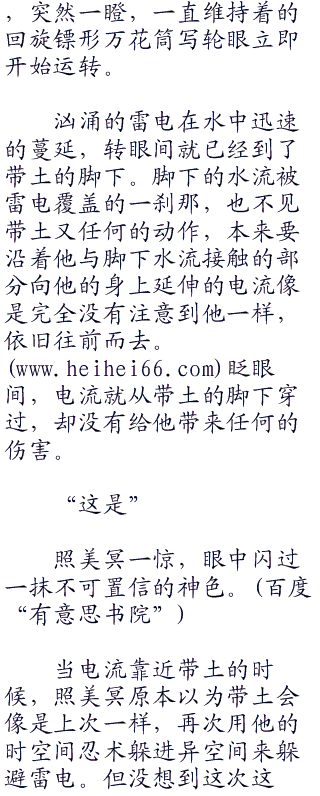 ，突然一瞪，一直维持着的
回旋镖形万花筒写轮眼立即
开始运转。
汹涌的雷电在水中迅速
的蔓延，转眼间就已经到了
带土的脚下。脚下的水流被
雷电覆盖的一刹那，也不见
带土又任何的动作，本来要
沿着他与脚下水流接触的部
分向他的身上延伸的电流像
是完全没有注意到他一样，
依旧往前而去。
(www.heihei66.com)眨眼
间，电流就从带土的脚下穿
过，却没有给他带来任何的
伤害。
“这是”
照美冥一惊，眼中闪过
一抹不可置信的神色。(百度
“有意思书院”)
当电流靠近带土的时
候，照美冥原本以为带土会
像是上次一样，再次用他的
时空间忍术躲进异空间来躲
避雷电。但没想到这次这